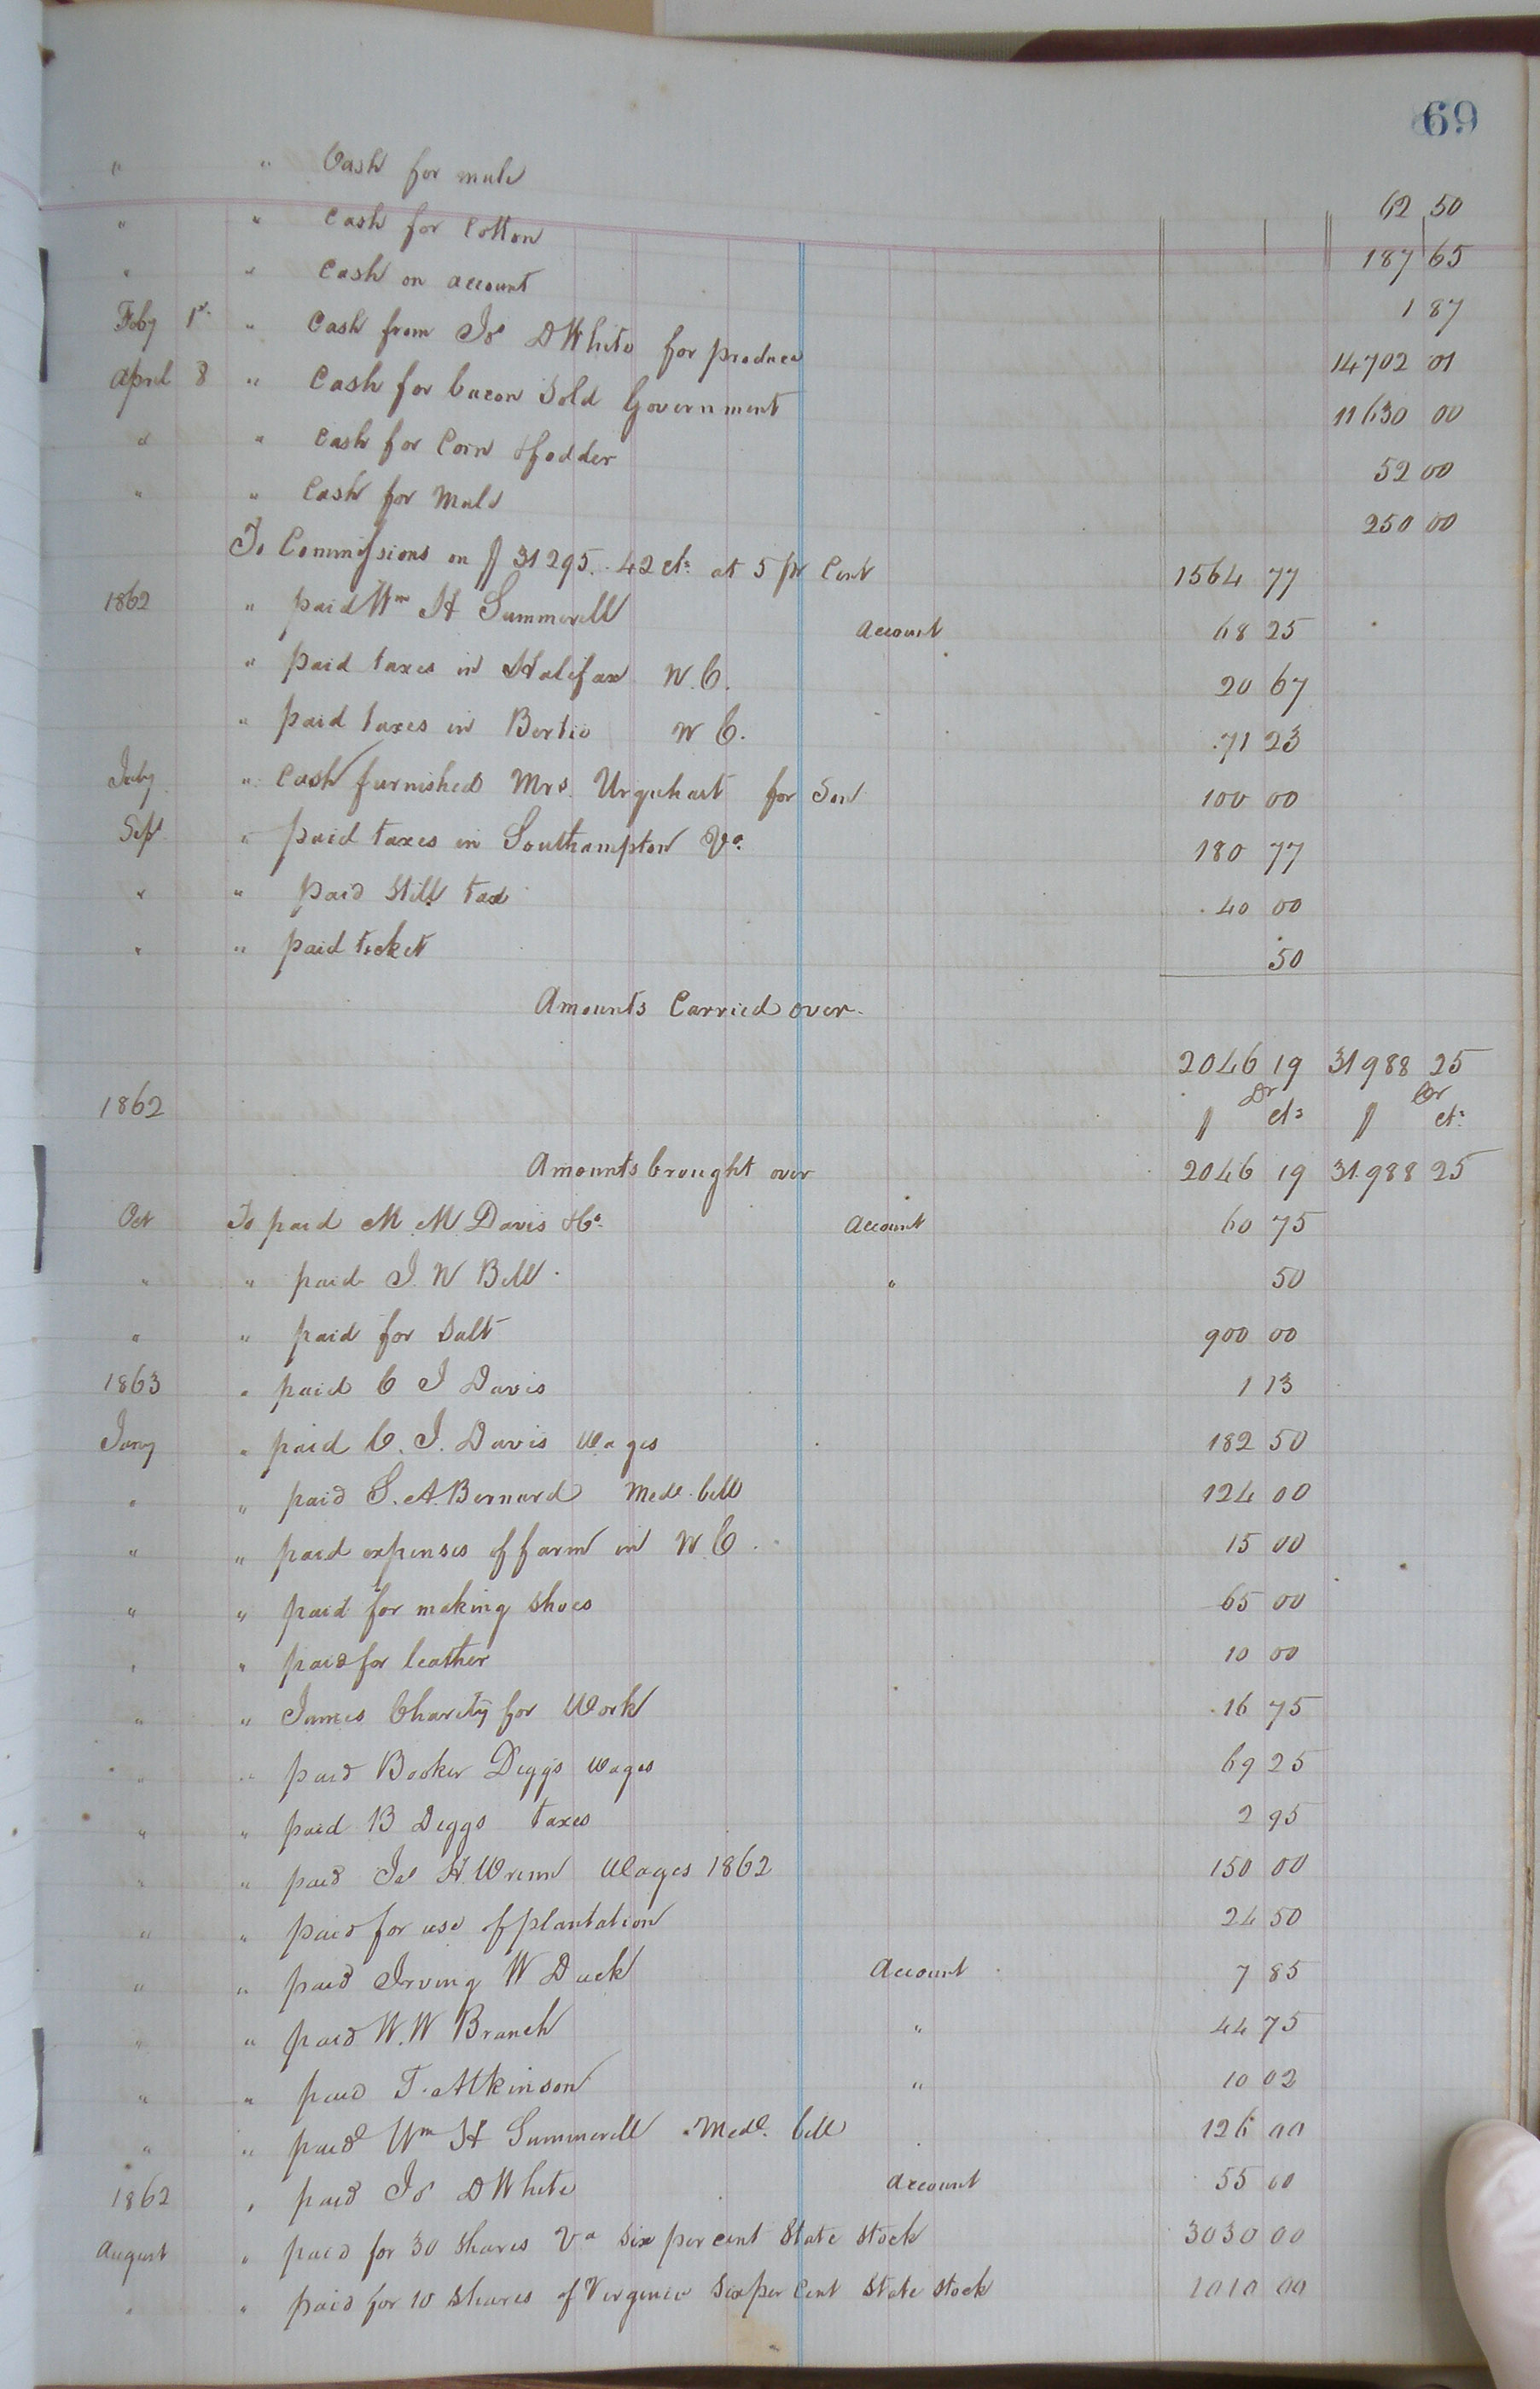 69
" " Cash for mule 62 50
" " Cash for Cotton 187 65
" " Cash on account 1 87
Feby 1st " Cash from Js D White for produce 14702 01
April 8 " Cash for bacon Sold Government 11630 00
" " Cash for Corn & fodder 52 00
" " Cash for Mule 250 00
To Commissions on $ 31295.42 cts at 5 pr Cent 1564 77
1862 " paid Wm H Summerell Account 68 25
" paid taxes in Halifax N.C. 20 67
" paid taxes in Bertie N C. 71 23
July " Cash furnished Mrs. Urquhart for Son 100 00
Sept " paid taxes in Southampton Va. 180 77
" " paid Still tax 40 00
" " paid ticket 50
Amounts Carried over.
2046 19 31988 25
Dr Cr
1862 $ cts $ cts
Amounts brought over 2046 19 31988 25
Oct To paid M. M. Davis & Co. Account 60 75
" " paid J. W Bell " 50
" " paid for Salt 900 00
1863 " paid C J Davis 1 13
Jany " paid C. J. Davis Wages 182 50
" " paid S. A. Bernard Medl. bill 124 00
" " paid expenses of farm in N.C. 15 00
" " paid for making shoes 65 00
" " paid for leather 10 00
" " James Charity for Work 16 75
" " paid Booker Diggs wages 69 25
" " paid B Diggs taxes 2 95
" " paid Js H. Wrenn Wages 1862 150 00
" " paid for use of plantation 24 50
" " paid Irving W Duck Account 7 85
" " paid W. W Branch " 44 75
" " paid T. Atkinson " 10 02
" " paid Wm H Summerell Medl. bill 126 00
1862 " paid Js D White account 55 00
August " paid for 30 Shares Va Six per cent State Stock 3030 00
" " paid for 10 Shares of Virginia Six per Cent State Stock 1010 00